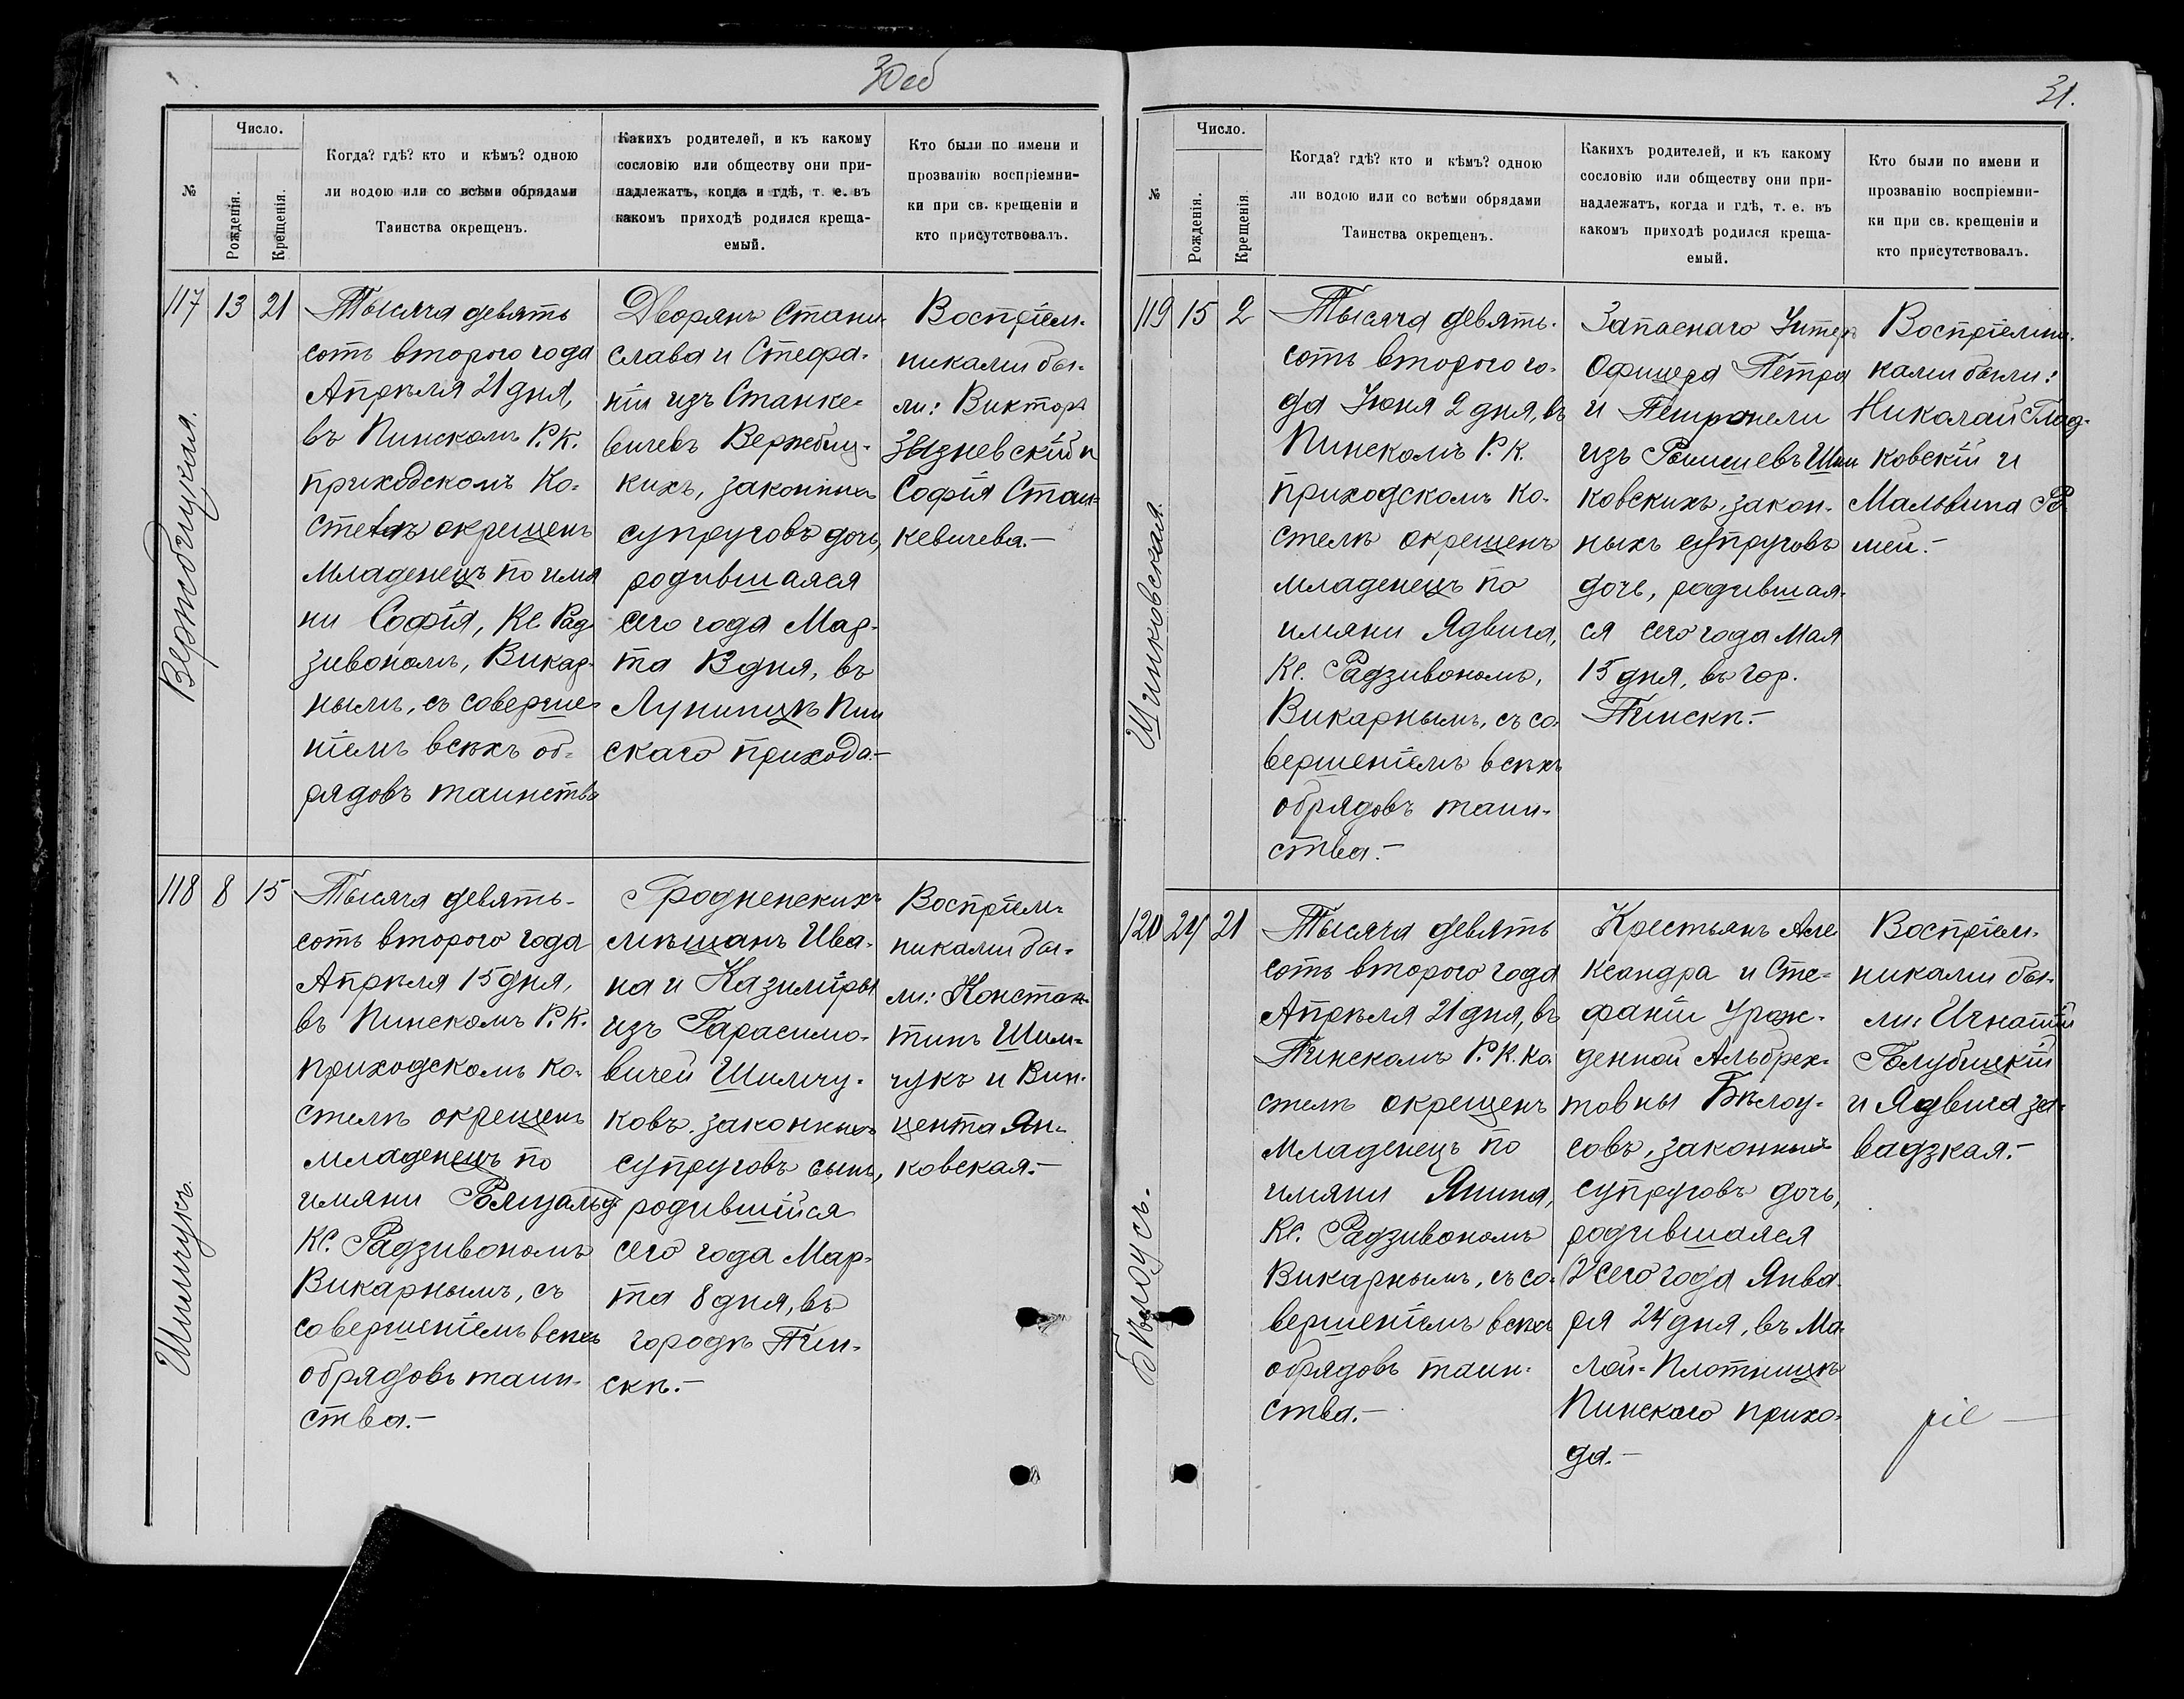 30об
№
Число.
Рожденія.
Крещенія.
Когда? гдѣ? кто и кѣмъ? одною
ли водою или со всѣми обрядами
Таинства окрещенъ.
Какихъ родителей, и къ какому
сословію или обществу они при-
надлежатъ, когда и гдѣ, т. е. въ
какомъ приходѣ родился креща-
емый.
Кто были по имени и
прозванію воспріемни-
ки при св. крещеніи и
кто присутствовалъ.
Вержбицкая.
117 13 21
Тысяча девять
сотъ второго года
Апрѣля 21 дня,
въ Пинскомъ Р. К.
приходскомъ Ко-
стелѣ окрещенъ
младенецъ по имя
ни Софія, Кс. Рад
зивономъ, Викар-
нымъ, съ соверше
ніемъ всѣхъ об-
рядовъ таинства
Дворянъ Стани-
слава и Стефа-
ніи изъ Станке-
вичевъ Вержбиц-
кихъ, законныхъ
супруговъ дочь,
родившаяся
сего года Мар-
та 13 дня, въ
Лунинцѣ Пин
скаго прихода.-
Воспріем-
никами бы-
ли: Викторъ
Звызневскій и
Софія Стан-
кевичева.-
Шимчукъ.
118 8 15
Тысяча девять-
сотъ второго года
Апрѣля 15 дня,
въ Пинскомъ Р. К.
приходскомъ ко-
стелѣ окрещенъ
младенецъ по
имяни Ромуальд
Кс. Радзивономъ
Викарнымъ, съ
совершеніемъ всѣхъ
обрядовъ таин-
ства.-
Гродненскихъ
мѣщанъ Ива-
на и Казиміры
изъ Гарасимо-
вичей Шимчу-
ковъ, законныхъ
супруговъ сынъ,
родившійся
сего года Мар-
та 8 дня, въ
городѣ Пин-
скѣ.-
Воспріем-
никами бы-
ли: Констан-
тинъ Шим-
чукъ и Вин-
цента Ян-
ковская.-
31.
№
Число.
Рожденія.
Крещенія
Когда? гдѣ? кто и кѣмъ? одною
ли водою или со всѣми обрядами
Таинства окрещенъ.
Какихъ родителей, и къ какому
сословію или обществу они при-
надлежатъ, когда и гдѣ, т. е. въ
какомъ приходѣ родился креща-
емый.
Кто были по имени и
прозванію воспріемни-
ки при св. крещеніи и
кто присутствовалъ.
Шинковская.
119 15 2
Тысяча девять-
сотъ второго го-
да Іюня 2 дня, въ
Пинскомъ Р. К.
приходскомъ ко-
стелѣ окрещенъ
младенецъ по
имяни Ядвига,
Кс. Радзивономъ,
Викарнымъ, съ со-
вершеніемъ всѣхъ
обрядовъ таин-
ства.-
Запаснаго Унтеръ
Офицера Петра
и Петронели
изъ Шин
ковскихъ, закон-
ныхъ супруговъ
дочь, родившая-
ся сего года Мая
15 дня, въ гор.
Пинскѣ.-
Воспріемни-
ками были:
Николай Глад-
ковскій и
Мальвина Ро
мей.-
Бѣлоусъ.
120 24 21
Тысяча девять
сотъ второго года
Апрѣля 21 дня, въ
Пинскомъ Р. К. ко
стелѣ окрещенъ
младенецъ по
имяни Янина,
Кс. Радзивономъ
Викарнымъ, съ со-
вершеніемъ всѣхъ
обрядовъ таин-
ства.-
Крестьянъ Але
ксандра и Сте-
фаніи Урож-
денной Альбрех-
товны Бѣлоу-
совъ, законныхъ
супруговъ дочь,
родившаяся
сего года Янва-
ря 24 дня, въ Ма-
лой-Плотницѣ
Пинскаго прихо-
да.-
Воспріем-
никами бы-
ли: Игнатій
Голубицкій
и Ядвига За-
вадзкая.-